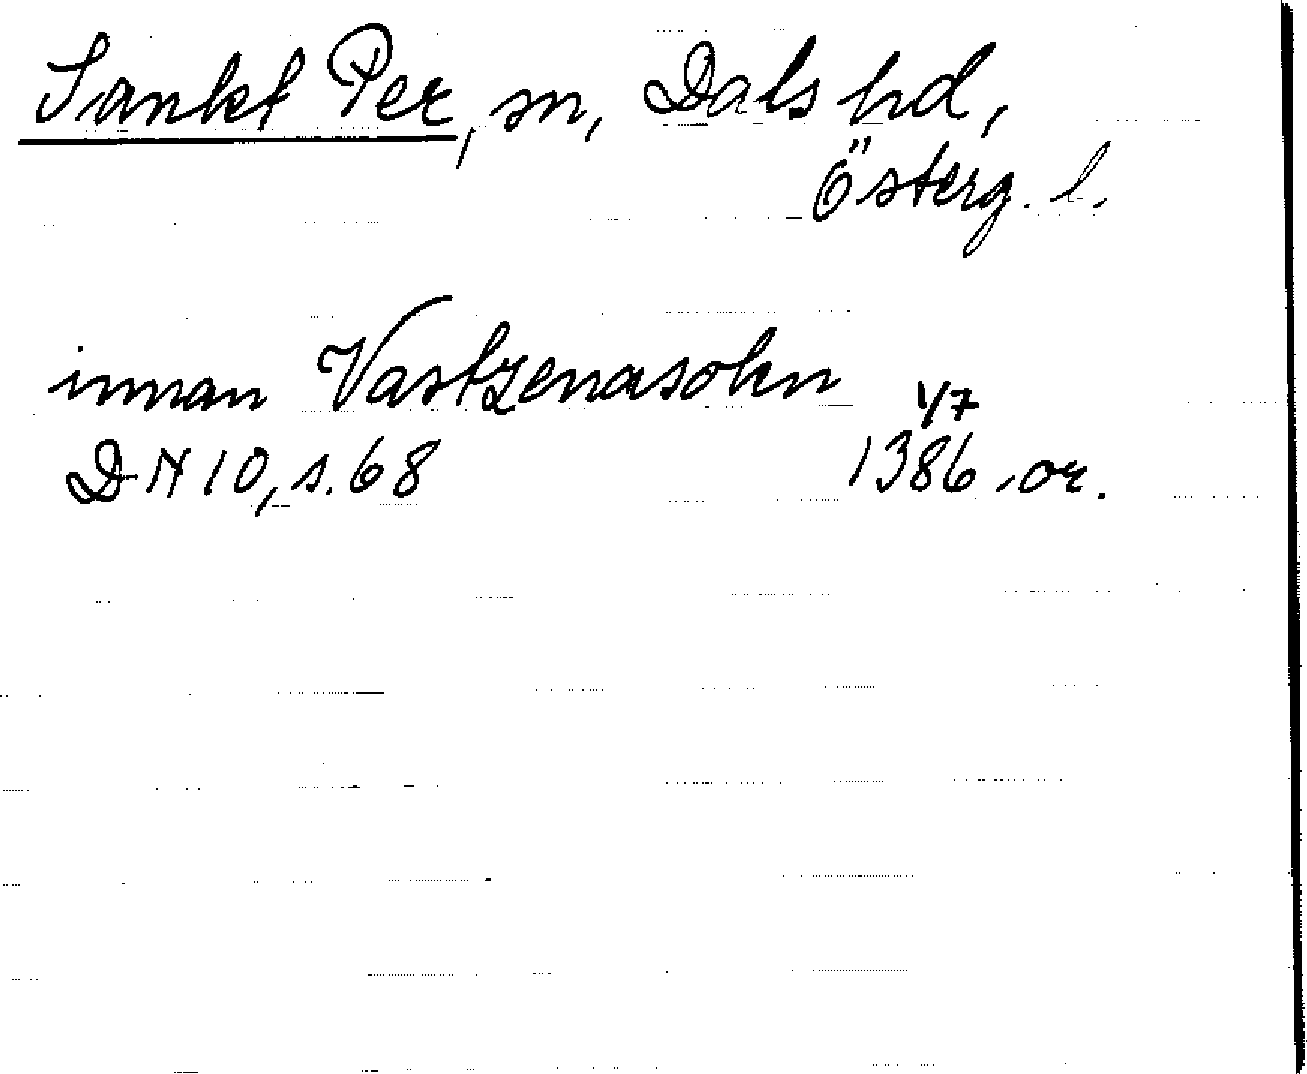 Sankt Per, sn, Dals hd,
Österg. l.
innan Vastzenasokn
1/7
DN 10, s. 68 1386, or.